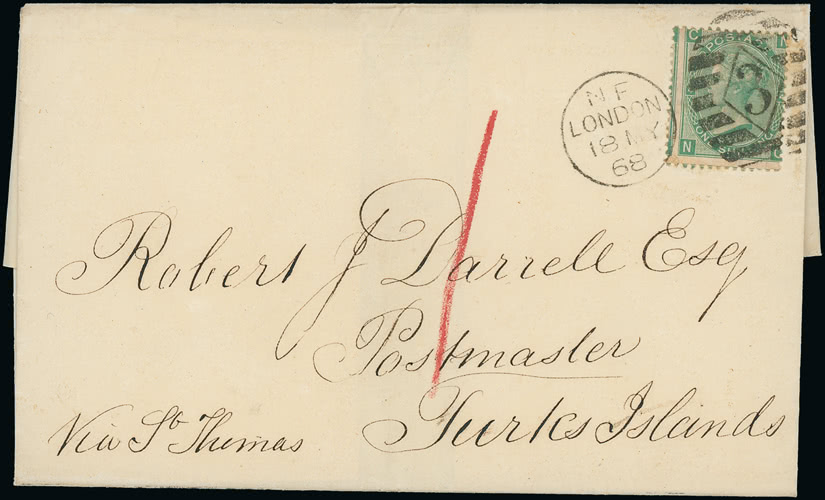 N F
LONDON
18 MY
68
C N
POSTA
ONE SHILLING
N C
3
Robert J Darrell Esq
Postmaster
Turks Islands
Via St Thomas